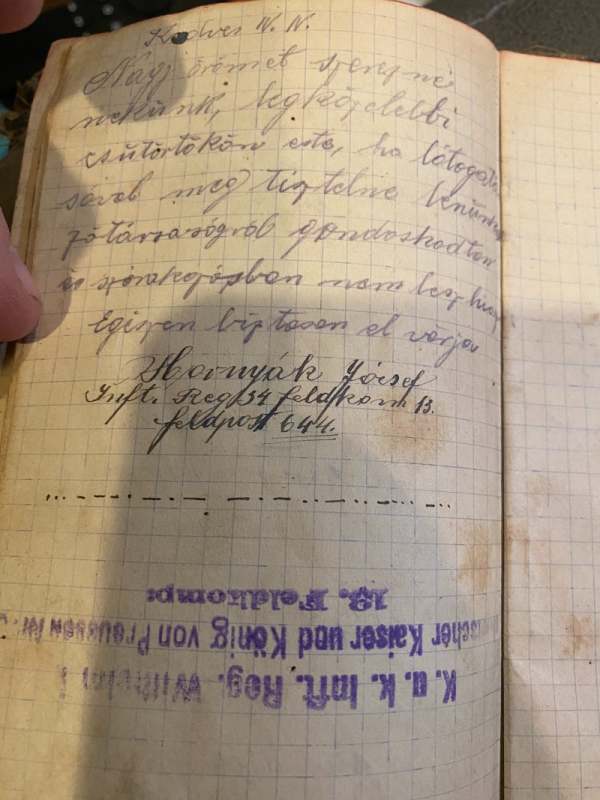 Kedves N. N.
Nagy örömet szerezne
nekünk, legközelebbi
csütörtökön este, ha látogatá
sával meg tisztelne benünket
jótársaságról gondoskodtam
és szórakozásban nem lesz hiány
Egészen biztosan el várja
Hornyák József
Inft. Reg 34 feldkom 13.
feldpost 644.
K. u. k. Inft. Reg. Wilhelm I
Deutscher Kaiser und König von Preussen Nr.
13. Feldkomp: